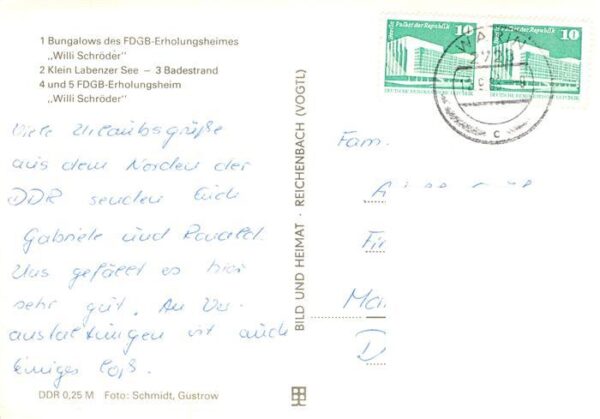 1 Bungalows des FDGB-Erholungsheimes
„Willi Schröder"
2 Klein Labenzer See – 3 Badestrand
4 und 5 FDGB-Erholungsheim
„Willi Schröder"
Viele Urlaubsgrüße
aus dem Norden der
DDR senden Euch
Gabriele und
Uns gefällt es hier
sehr gut. An Ver-
anstaltungen ist auch
einiges los.
DDR 0,25 M Foto: Schmidt, Gustrow
BILD UND HEIMAT · REICHENBACH (VOGTL)
Palast der Republik 10
DEUTSCHE DEMOKRATISCHE REPUBLIK
Palast der Republik 10
WARIN
2720
c
Fam.